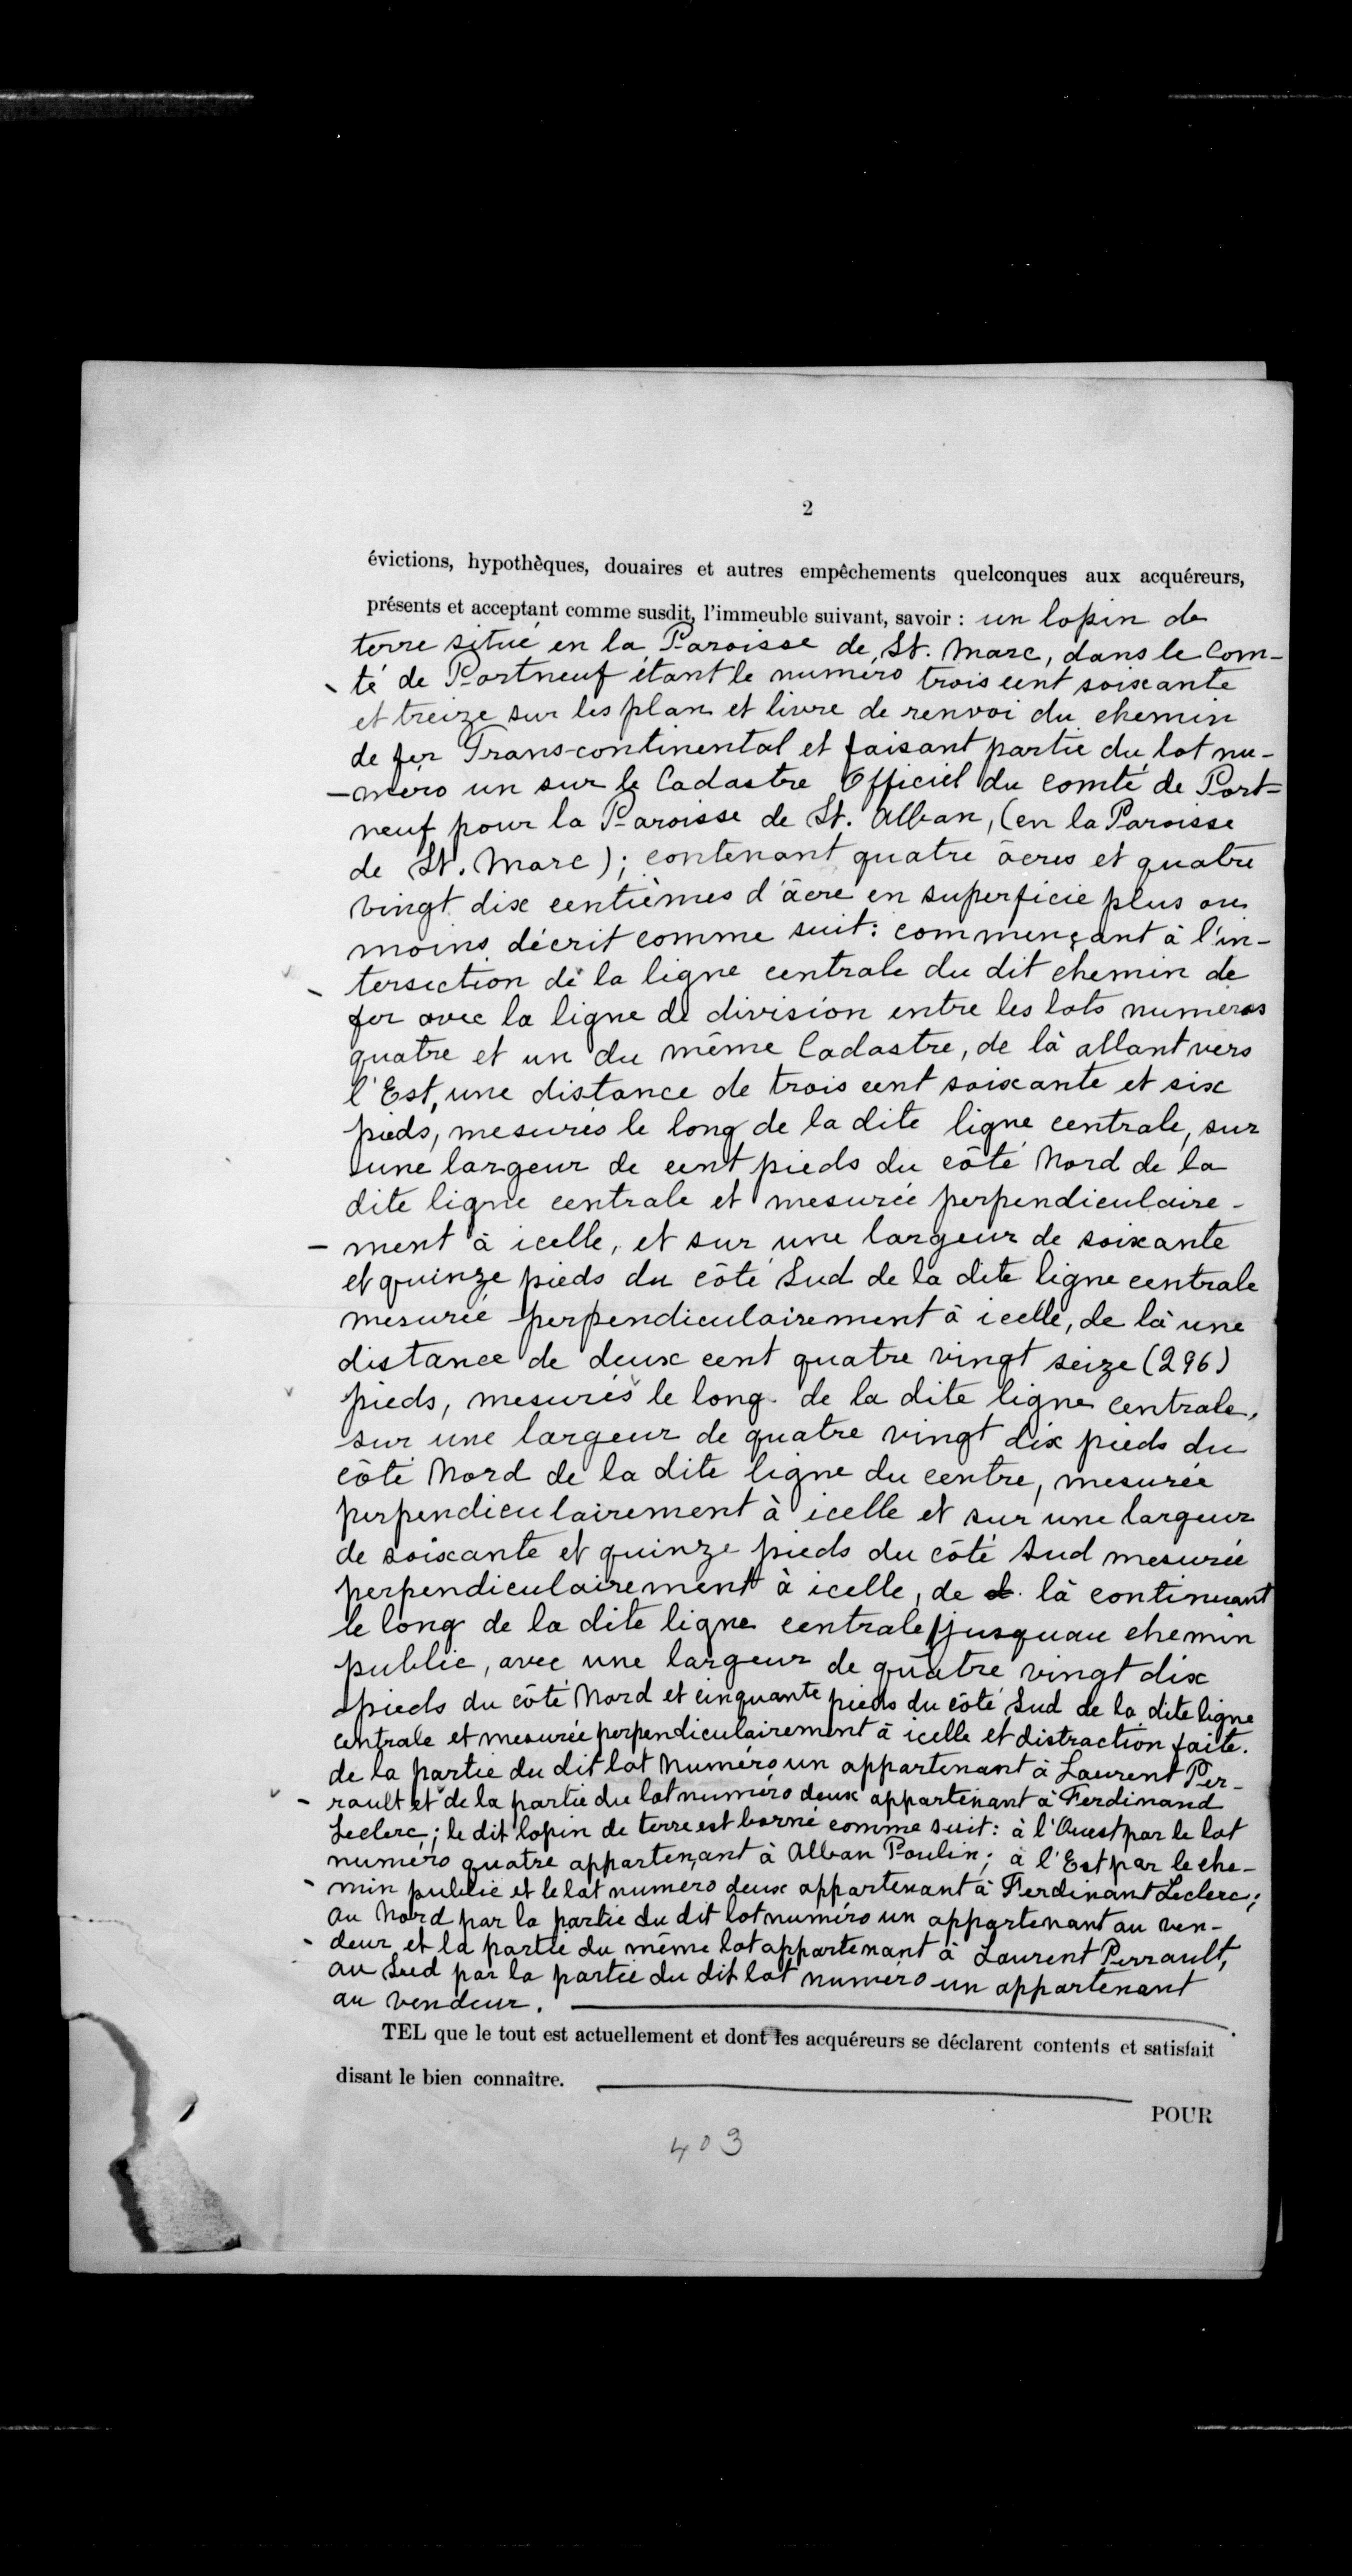 2
évictions, hypothèques, douaires et autres empêchements quelconques aux acquéreurs,
présents et acceptant comme susdit, l'immeuble suivant, savoir : un lopin de
terre situé en la Paroisse de St. Marc, dans le Com-
té de Portneuf étant le numéro trois cent soixante
et treize sur les plan et livre de renvoi du chemin
de fer Trans-continental et faisant partie du lot nu-
-méro un sur le Cadastre Officiel du comté de Port=
neuf pour la Paroisse de St. Alban, (en la Paroisse
de St. Marc); contenant quatre âcres et quatre
vingt dix centièmes d'âcre en superficie plus ou
moins décrit comme suit: commençant à l'in-
tersection de la ligne centrale du dit chemin de
fer avec la ligne de division entre les lots numéros
quatre et un du même Cadastre, de là allant vers
l'Est, une distance de trois cent soixante et six
pieds, mesurés le long de la dite ligne centrale, sur
une largeur de cent pieds du côté Nord de la
dite ligne centrale et mesurée perpendiculaire-
- ment à icelle, et sur une largeur de soixante
et quinze pieds du côté Sud de la dite ligne centrale
mesurée perpendiculairement à icelle, de là une
distance de deux cent quatre vingt seize (296)
pieds, mesurés le long de la dite ligne centrale,
sur une largeur de quatre vingt dix pieds du
côté Nord de la dite ligne du centre, mesurée
perpendiculairement à icelle et sur une largeur
de soixante et quinze pieds du côté Sud mesurée
perpendiculairement à icelle, de là continuant
le long de la dite ligne centrale jusquau chemin
public, avec une largeur de quatre vingt dix
pieds du côté Nord et cinquante pieds du côté Sud de la dite ligne
centrale et mesurée perpendiculairement à icelle et distraction faite.
de la partie du dit lot Numéro un appartenant à Laurent Per-
- rault et de la partie du lot numéro deux appartenant à Ferdinand
Leclerc; le dit lopin de terre est borné comme suit: à l'Ouest par le lot
numéro quatre appartenant à Alban Poulin; à l'Est par le che-
- min public et le lot numéro deux appartenant à Ferdinant Leclerc;
au Nord par la partie du dit lot numéro un appartenant au ven-
- deur et la partie du même lot appartenant à Laurent Perrault,
au Sud par la partie du dit lot numéro un appartenant
au vendeur.
TEL que le tout est actuellement et dont les acquéreurs se déclarent contents et satisfait
disant le bien connaître.
POUR
403